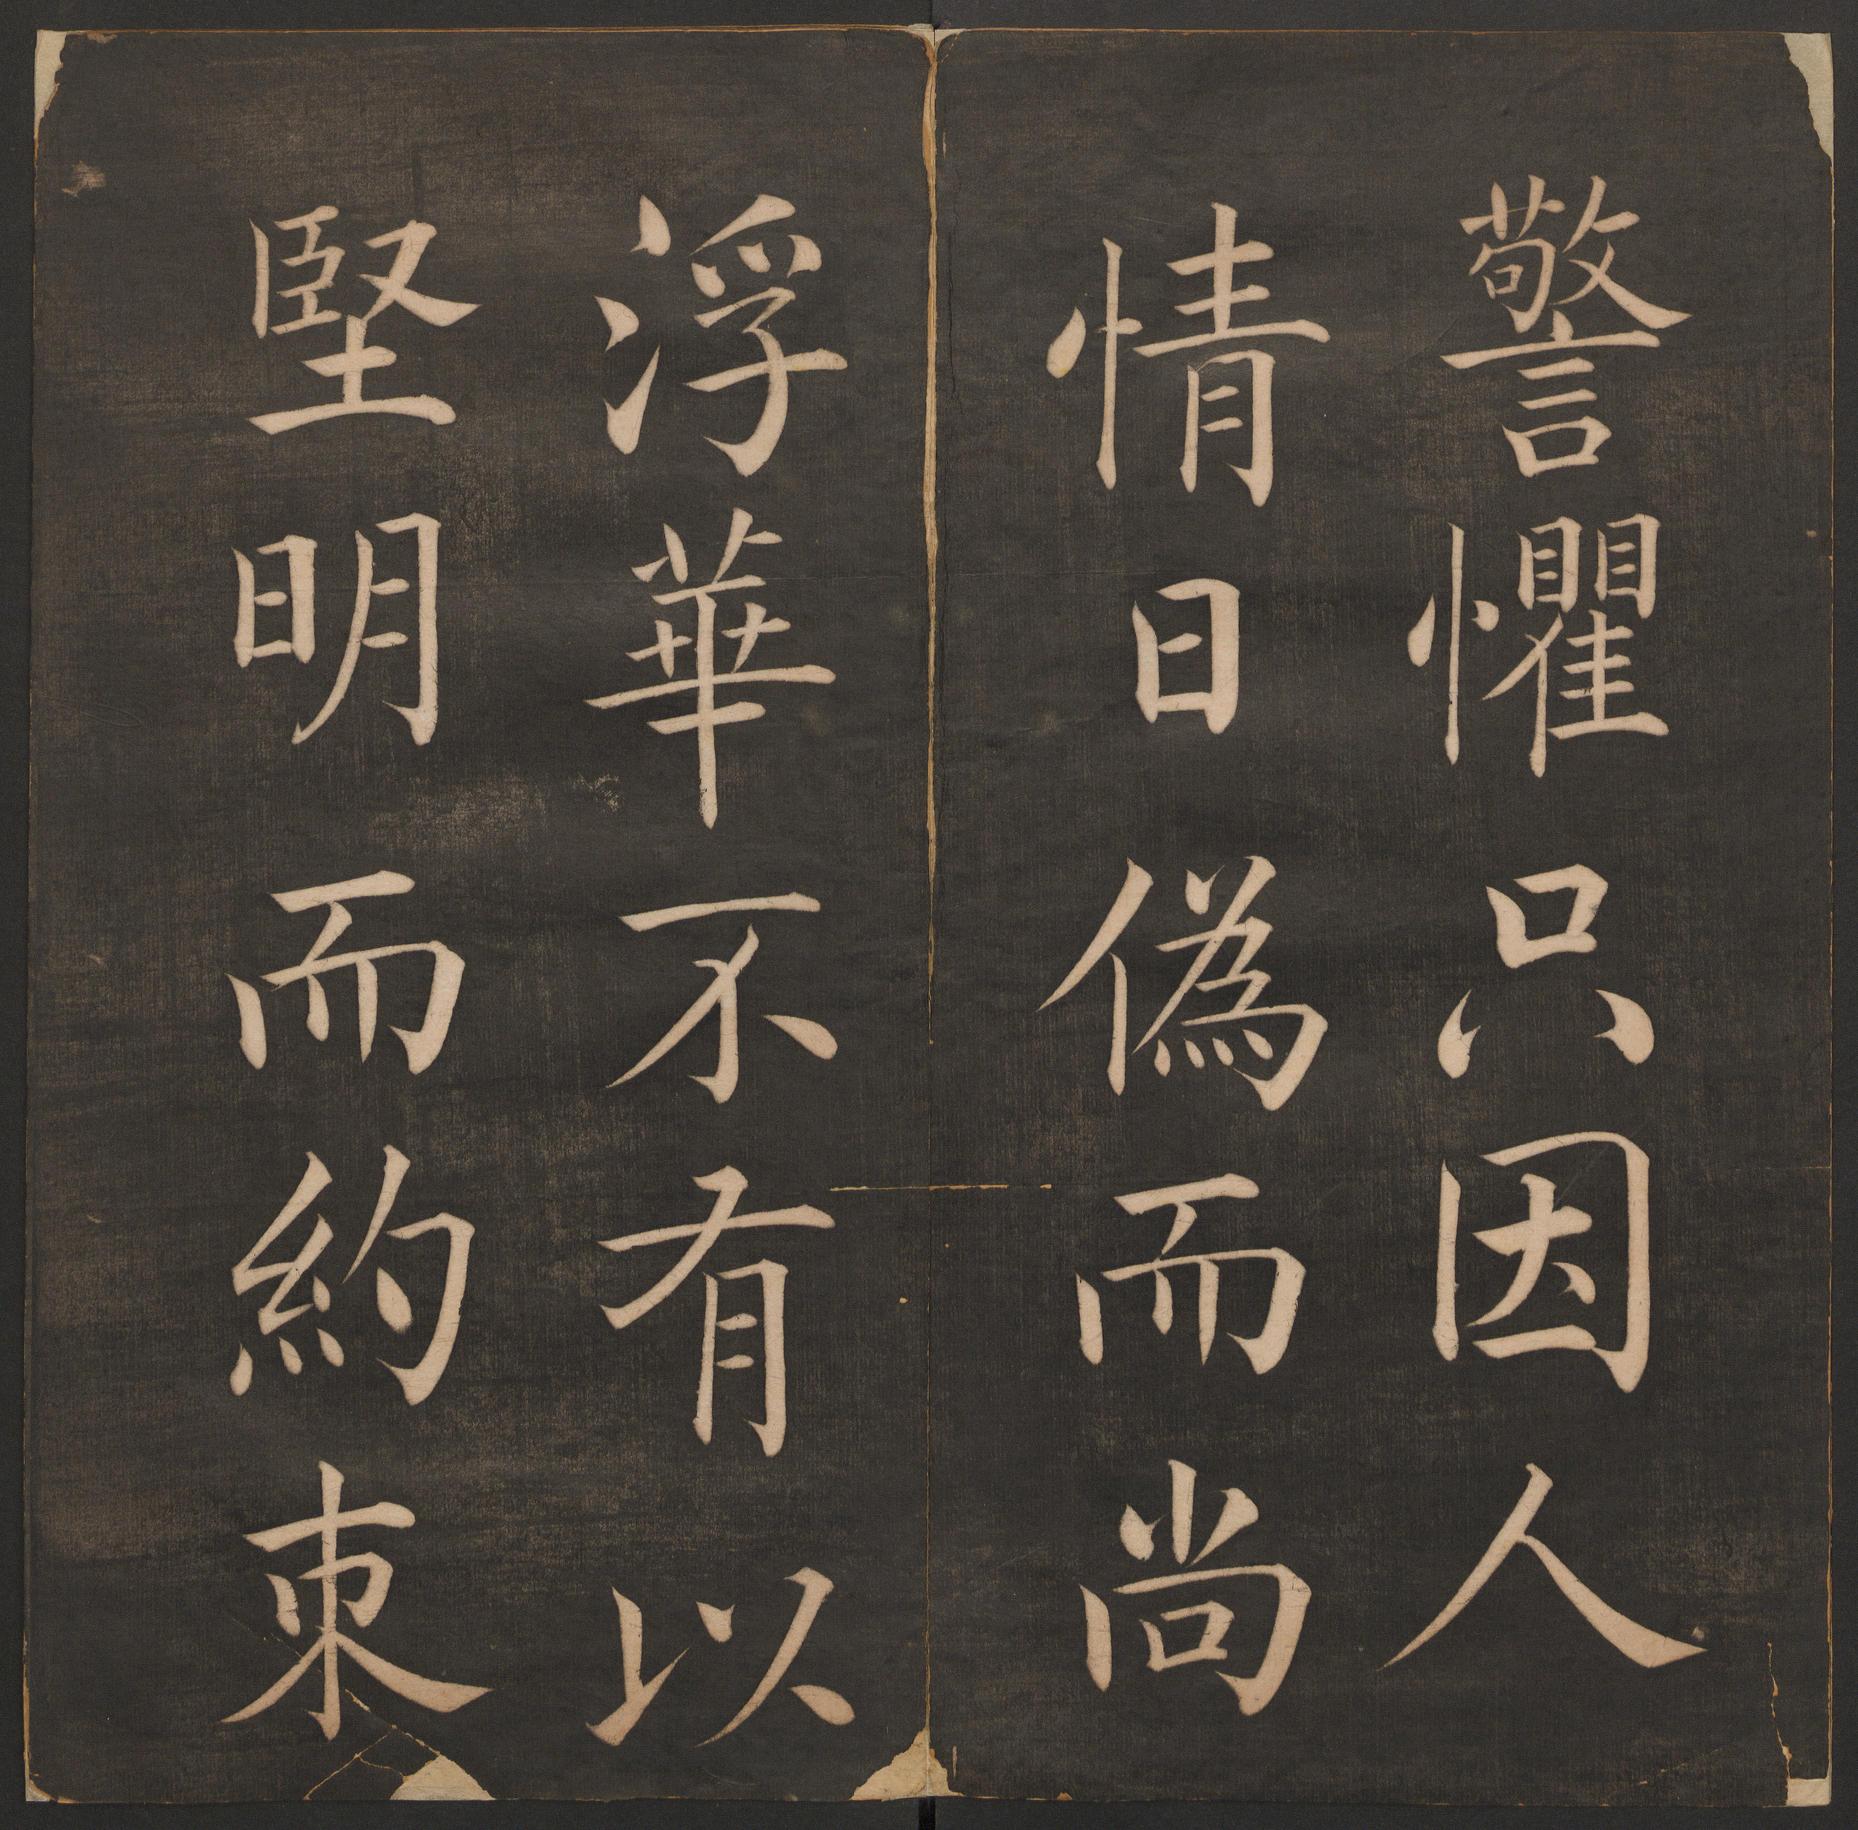 警懼只因人
情日偽而尚
浮華不有以
堅明而約束